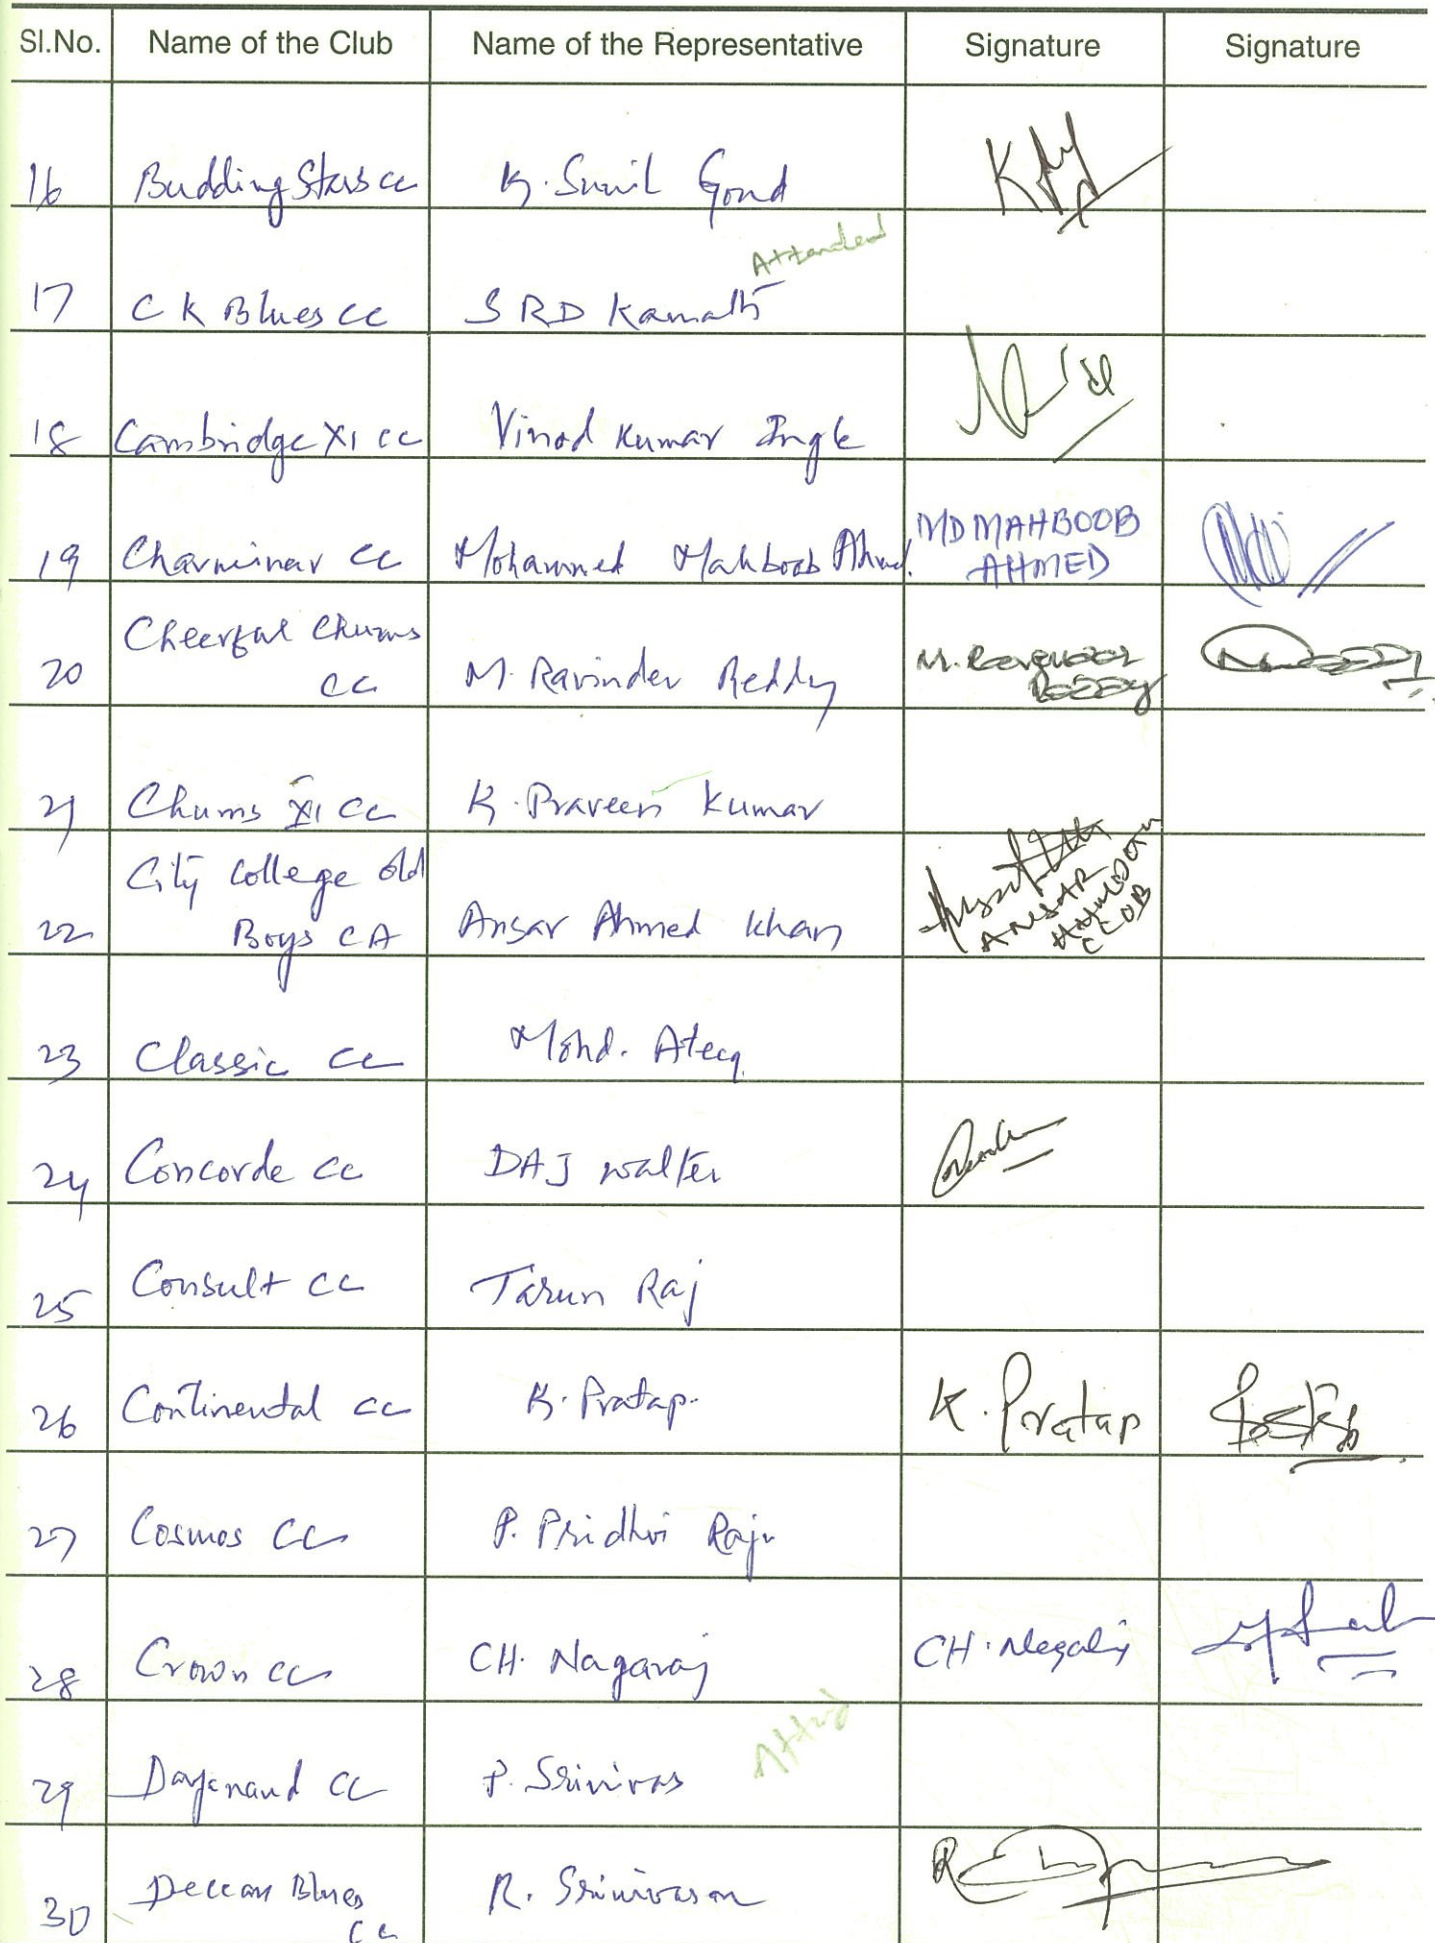 Sl.No. Name of the Club Name of the Representative Signature Signature
16 Budding Stars cc K. Sunil Goud
Attended
17 C K Blues cc S R D Kamath
18 Cambridge XI cc Vinod Kumar Ingle
19 Charminar cc Mohammed Mahboob Ahmed. MD MAHBOOB
AHMED
Cheerful Chums
20 cc M. Ravinder Reddy M. Ravinder
Reddy
21 Chums XI cc K. Praveen Kumar
City College Old
22 Boys CA Ansar Ahmed Khan ANSAR
23 Classic cc Mohd. Ateeq
24 Concorde cc DAJ Walter
25 Consult cc Tarun Raj
26 Continental cc K. Pratap. K. Pratap
27 Cosmos cc P. Pridhvi Raju
28 Crown cc CH. Nagaraj CH.
29 Dayanand cc P. Srinivas
30 Deccan Blues R. Srinivasan
cc